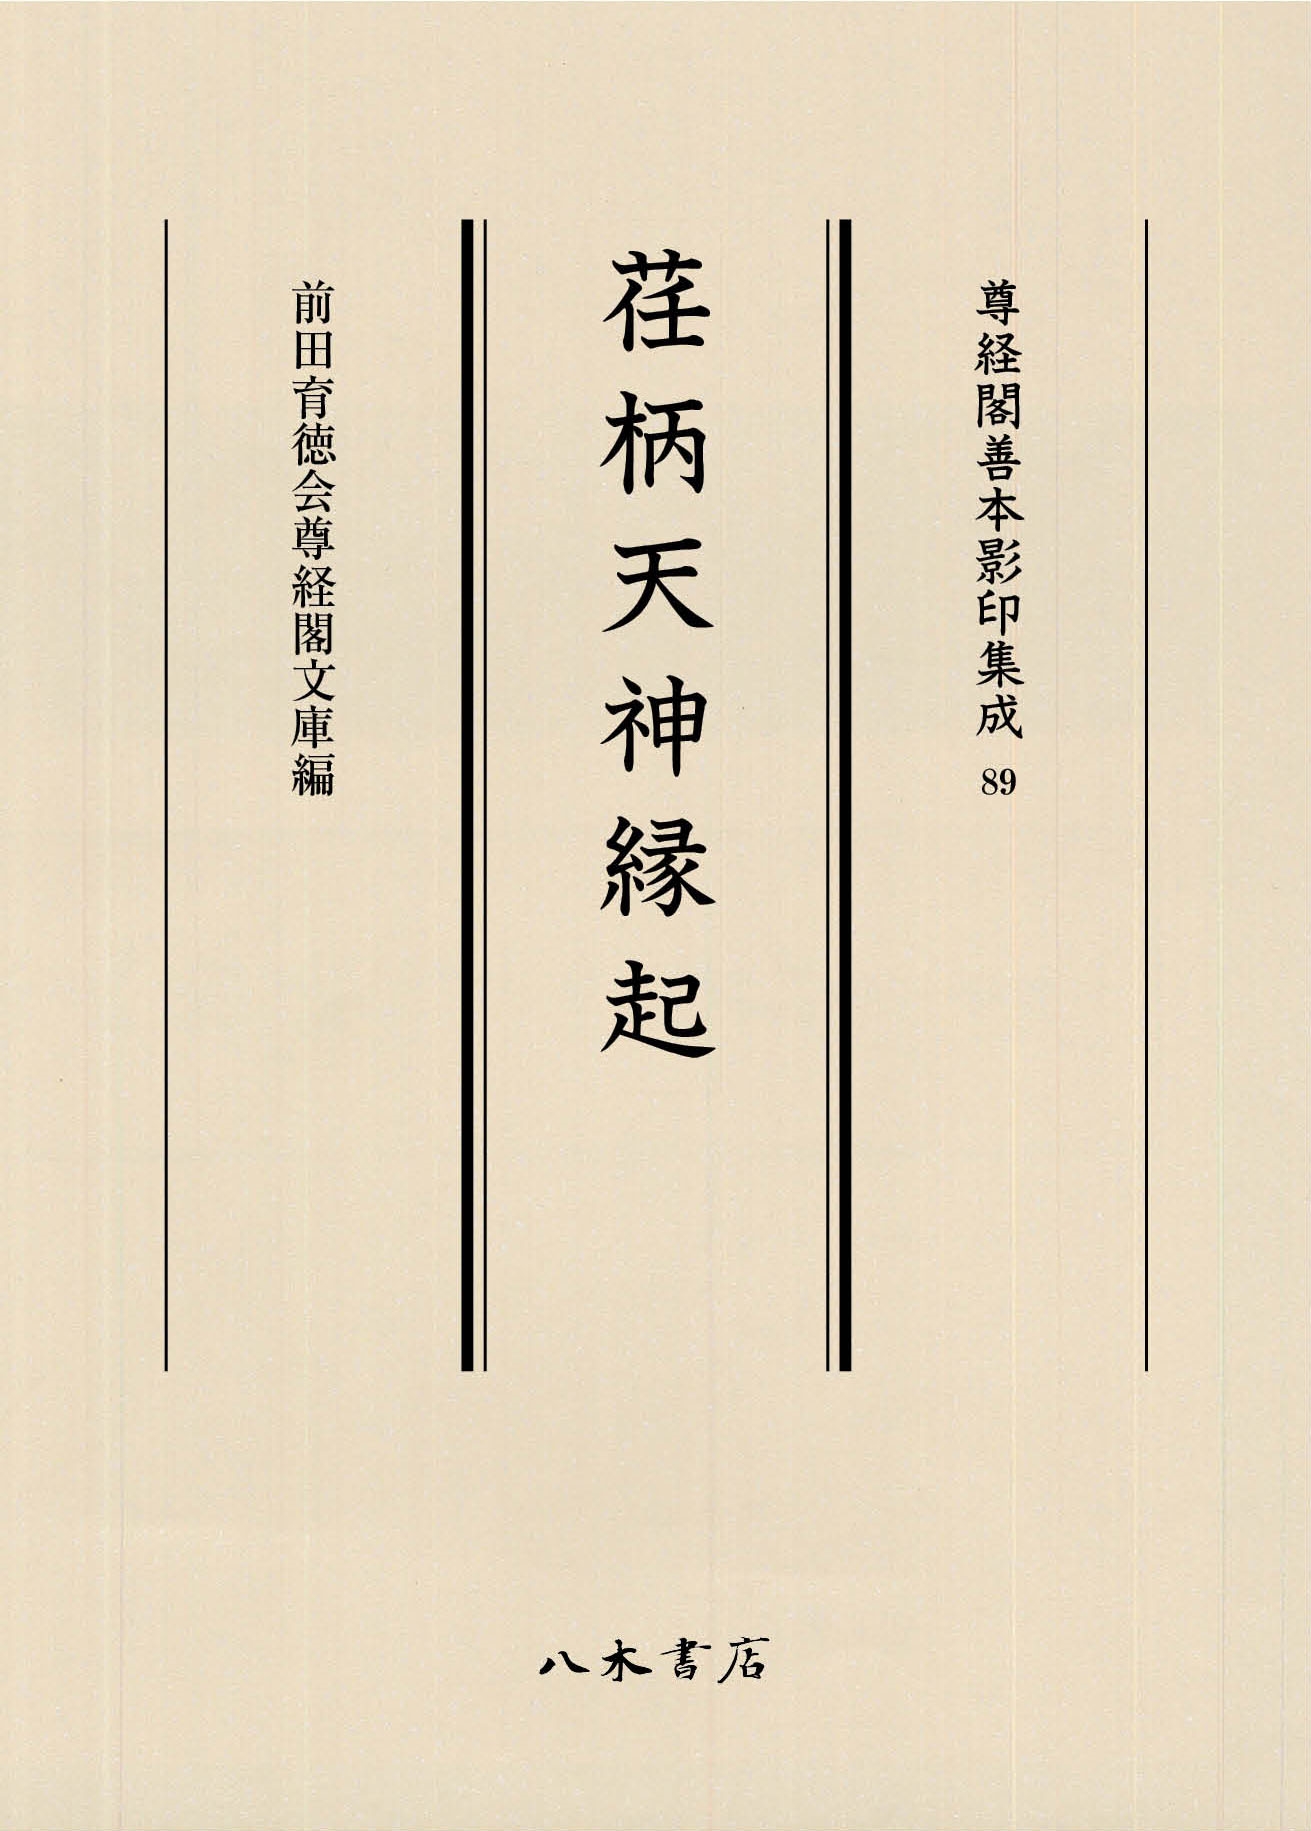 尊経閣善本影印集成 89
荏柄天神縁起
前田育徳会尊経閣文庫編
八木書店